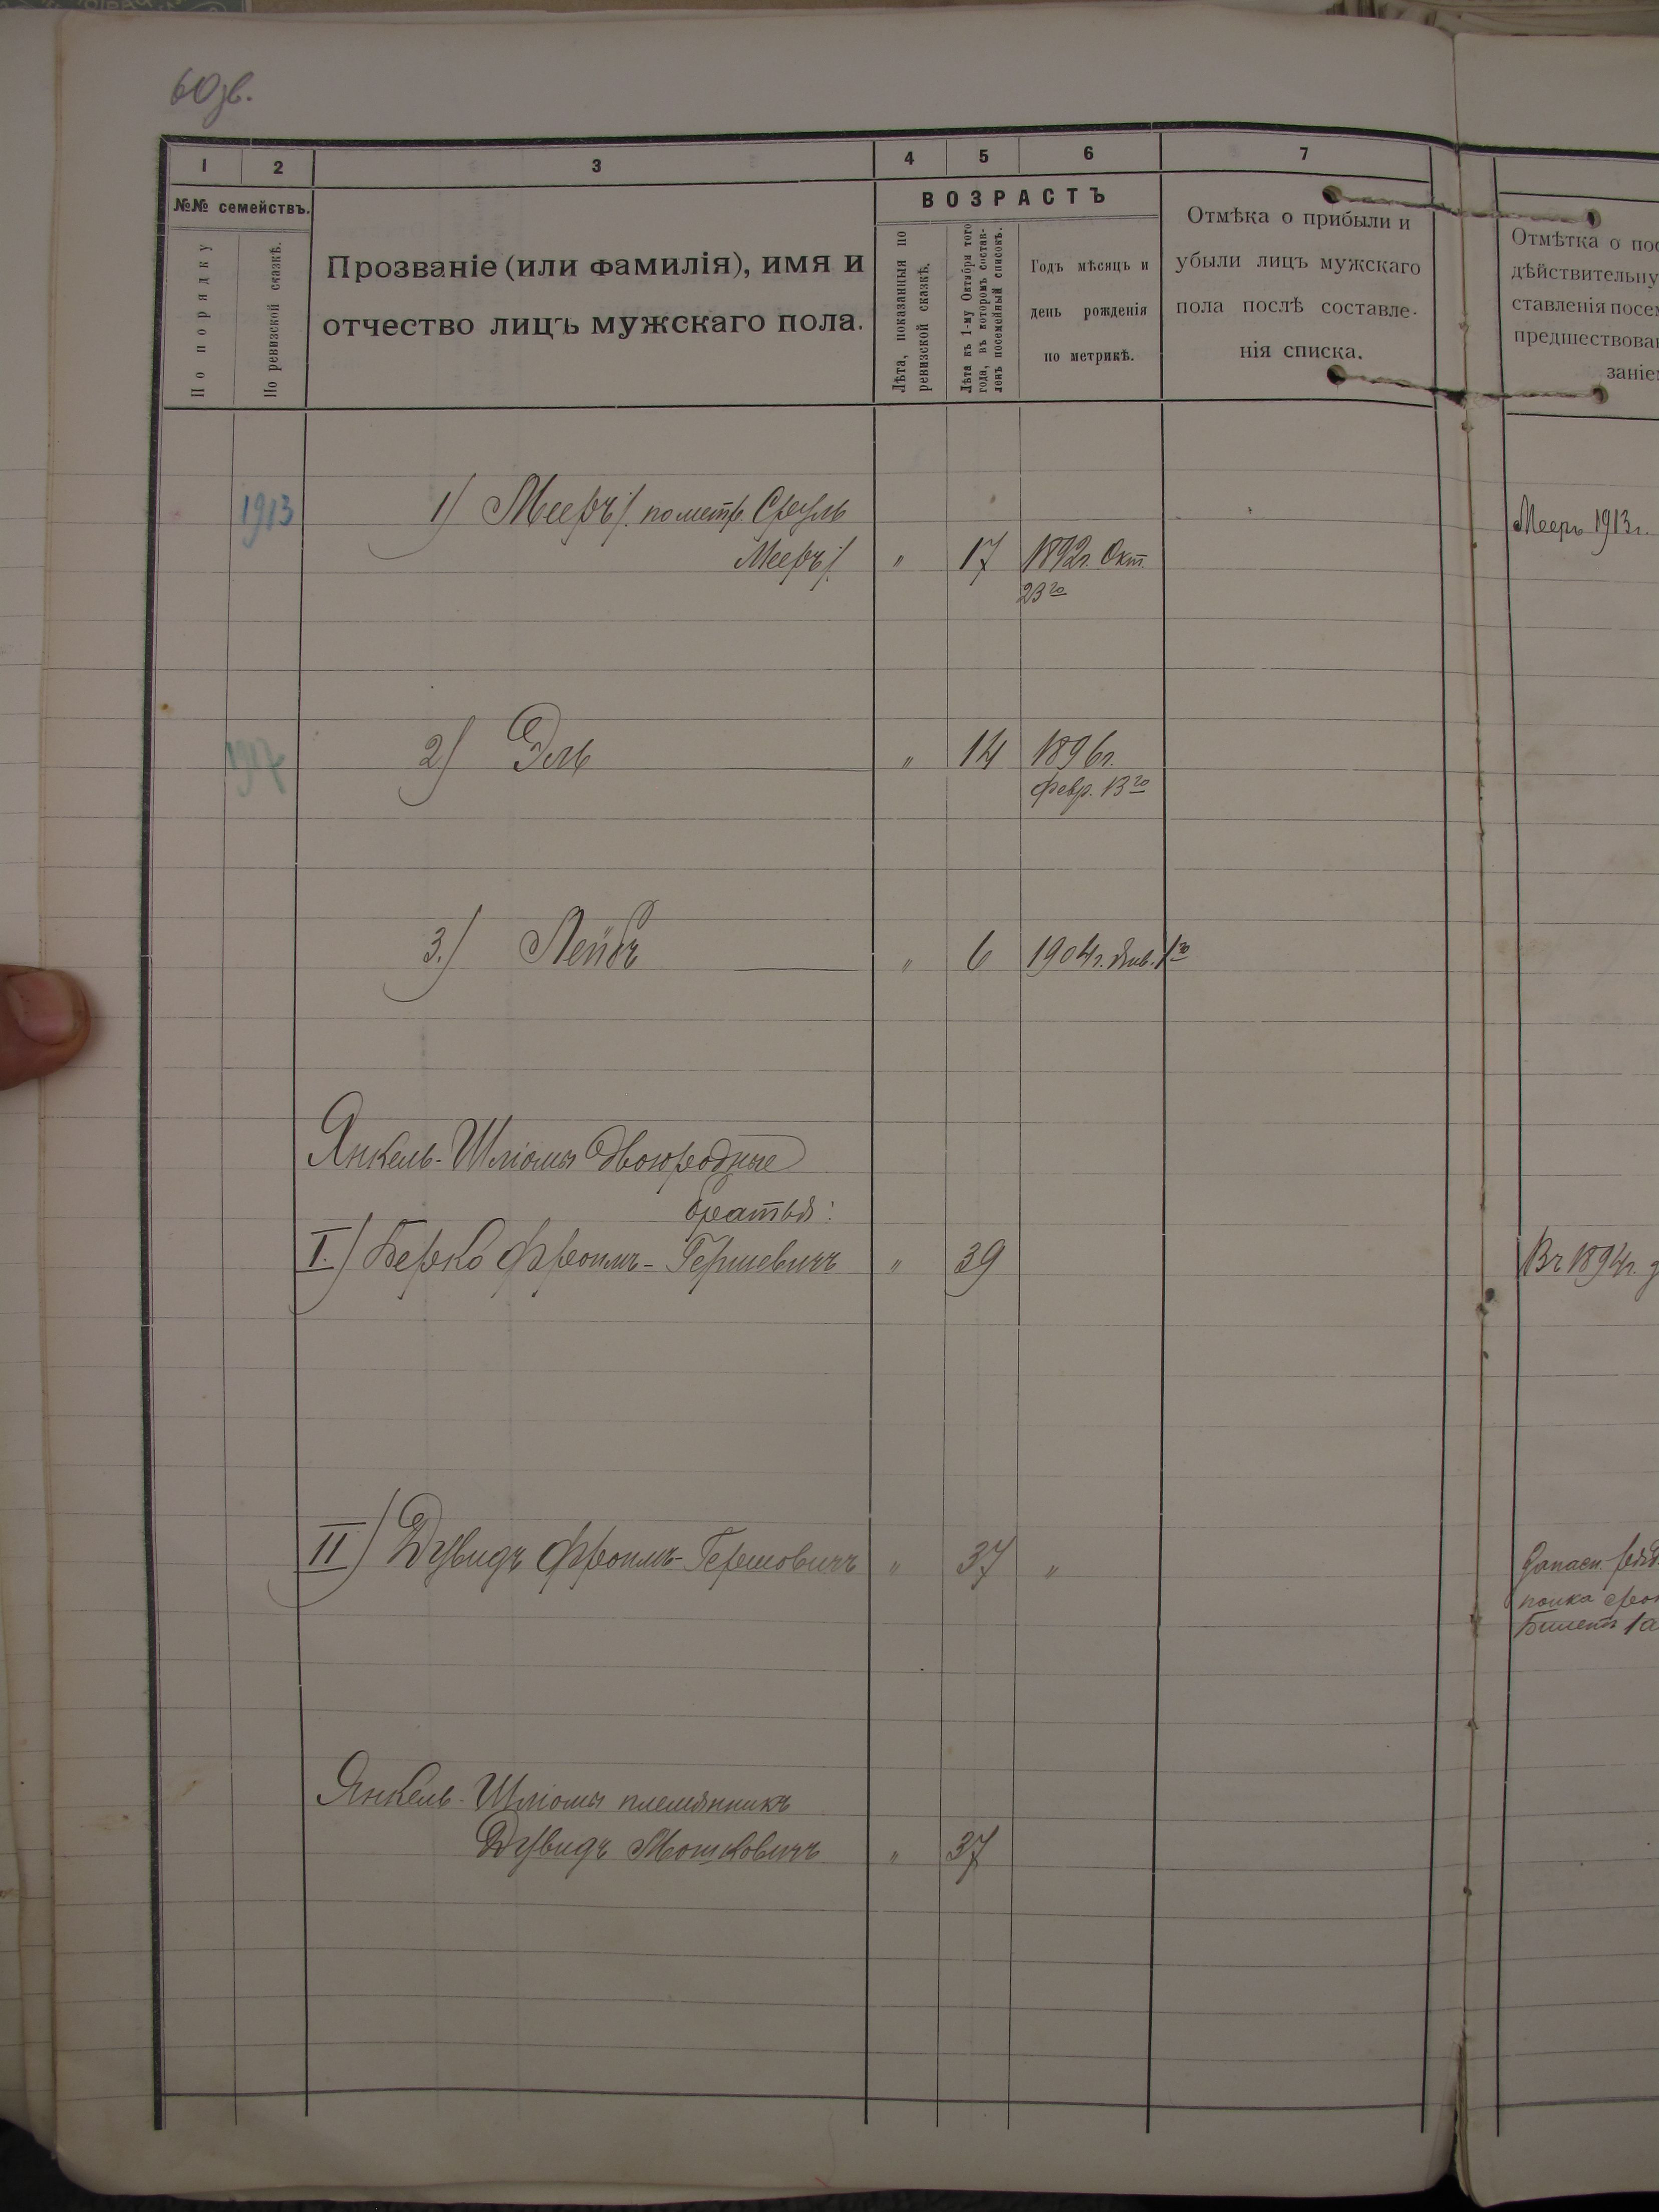 60зв.
1 2 3 4 5 6 7
№№ семействъ.
По порядку
По ревизской сказкѣ.
Прозваніе (или фамилія), имя и
отчество лицъ мужскаго пола.
ВОЗРАСТЪ
Лѣта, показанныя по
ревизской сказкѣ.
Лѣта къ 1-му Октября того
года, въ которомъ состав-
ленъ посемейный списокъ.
Годъ мѣсяцъ и
день рожденія
по метрикѣ.
Отмѣка о прибыли и
убыли лицъ мужскаго
пола послѣ составле-
нія списка.
Отмѣтка о пос
дѣйствительну
ставленія посем
предшествова
заніем
1913 1) Мееръ /. по метр. Сруль
Мееръ /. " 17 1892г. Окт.
23го
Мееръ 1913г.
1917 2) Эль " 14 1896г.
Февр. 13го
3.) Лейбъ " 6 1904г. Янв. 1го
Янкель-Шліомы двоюродные
братья:
I.) Берко Фроимъ-Гершевичъ " 39
Въ 1894г.
II) Дувидъ Фроимъ-Гершовичъ " 37 "
Запасн. ряд
полка
Билетъ
Янкель-Шліомы племянникъ
Дувидъ Мошковичъ " 37